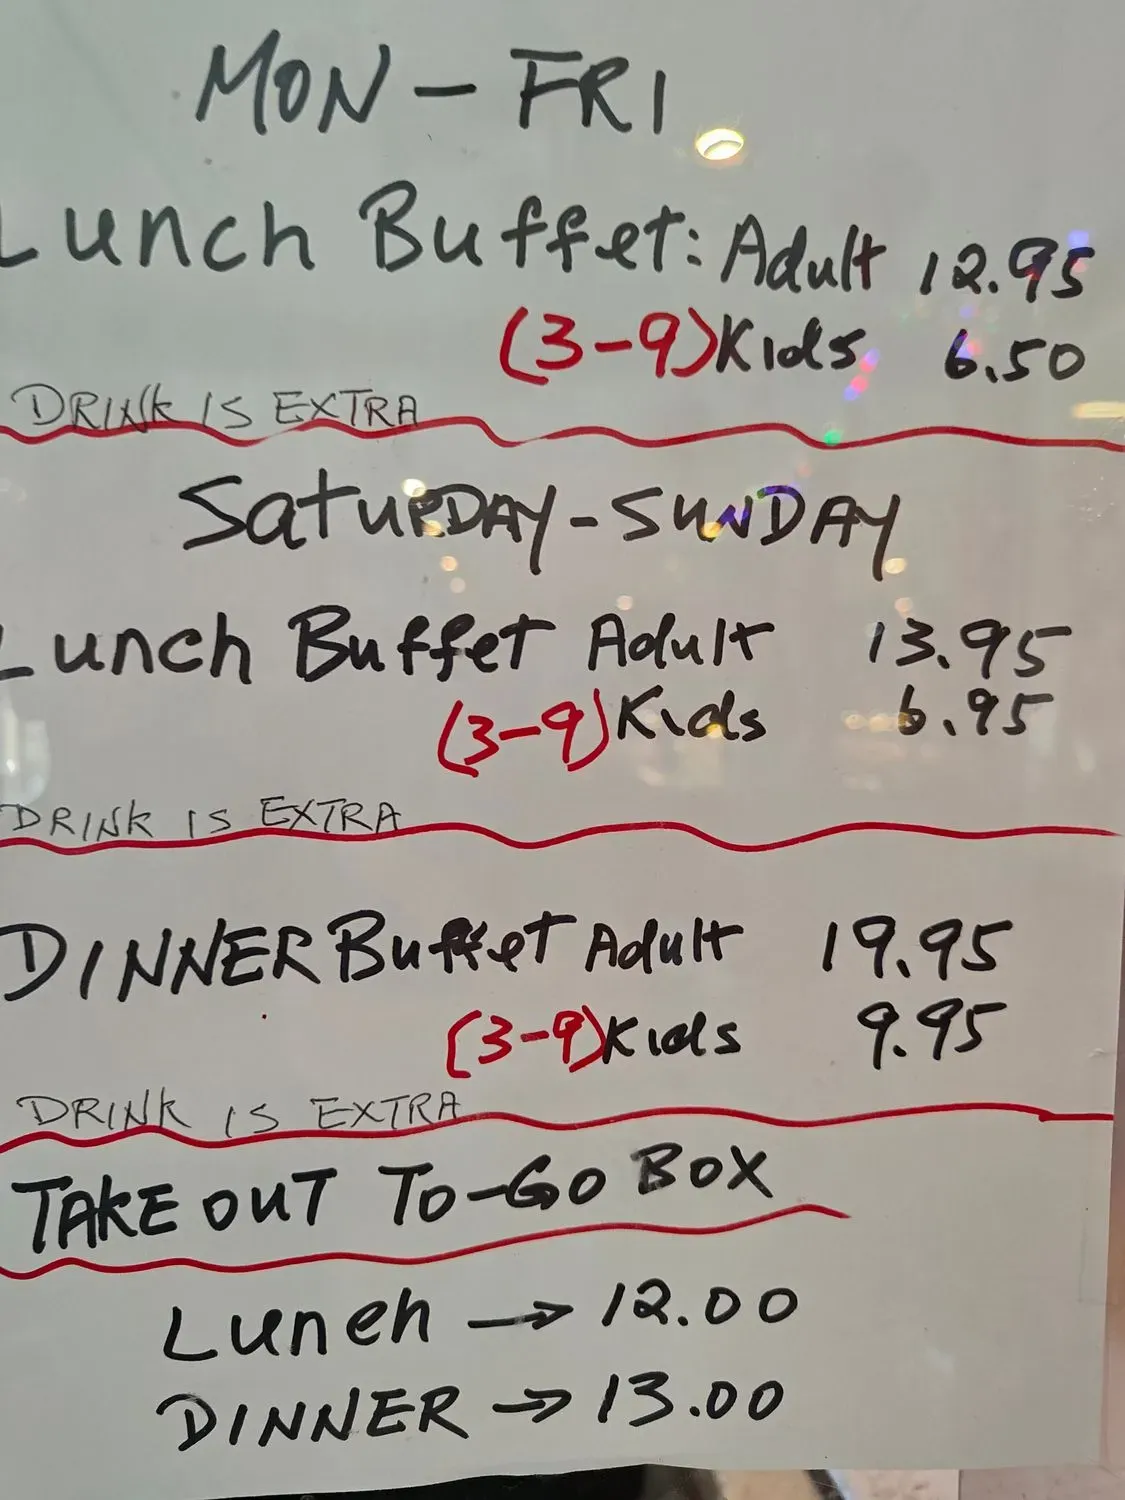 MON - FRI
Lunch Buffet: Adult 12.95
(3-9) Kids 6.50
DRINK IS EXTRA
SATURDAY - SUNDAY
Lunch Buffet Adult 13.95
(3-9) Kids 6.95
DRINK IS EXTRA
DINNER Buffet Adult 19.95
(3-9) Kids 9.95
DRINK IS EXTRA
TAKE OUT TO-GO BOX
Lunch → 12.00
DINNER → 13.00